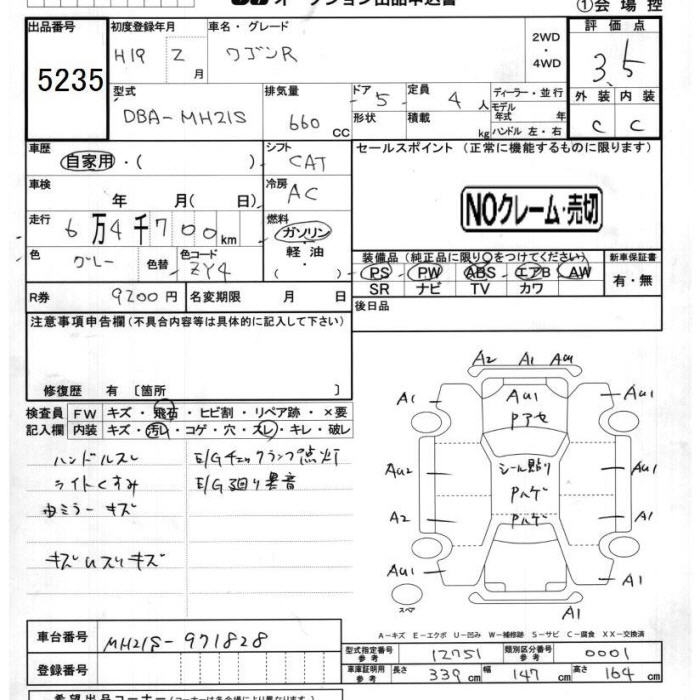 ①会場控
出品番号 初度登録年月 車名・グレード 評価点
5235 H19 2月 ワゴンR 2WD・4WD 3.5
型式 排気量 ドア 定員 ディーラー・並行 外装 内装
DBA-MH21S 660CC 5 4人 モデル年式 年 C C
形状 積載 kg ハンドル 左・右
車歴 シフト セールスポイント(正常に機能するものに限ります)
自家用・( ) CAT
車検 冷房
年 月( 日) AC NOクレーム・売切
走行 燃料
6万4千700km ガソリン・
色 色替 色コード 軽油・
グレー ZY4 ( )
装備品(純正品に限り○をつけてください) 新車保証書
PS・PW・ABS・エアB・AW 有・無
SR ナビ TV カワ
R券 9200円 名変期限 月 日 後日品
注意事項申告欄(不具合内容等は具体的に記入して下さい)
修復歴 有〔箇所 〕
検査員 FW キズ・飛石・ヒビ割・リペア跡・×要
記入欄 内装 キズ・汚れ・コゲ・穴・スレ・キレ・破レ
ハンドルスレ E/Gチェックランプ点灯
ライトくすみ E/G廻り異音
キズ
A2 A1 AU1
A1 AU1 AU1
Pアセ
AU2 シール貼り AU1
Pハゲ
A2 Pハゲ A1
AU1 A1
スペア A1
A-キズ E-エクボ U-凹み W-補修跡 S-サビ C-腐食 XX-交換済
車台番号 MH21S-971828
登録番号
型式指定番号 参考 12751 類別区分番号 参考 0001
車庫証明用 参考 長さ 339cm 幅 147cm 高さ 164cm